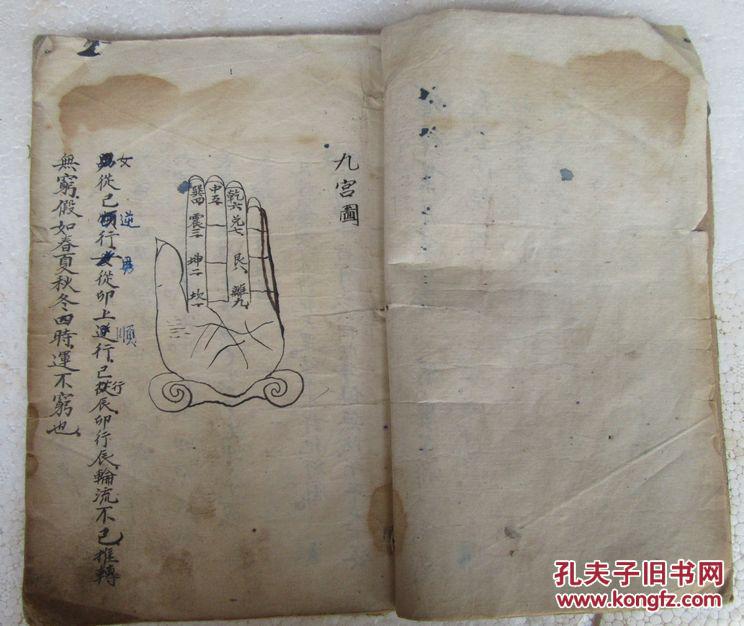 九宮圖
巽四 震三 坤二 坎一
中五
乾六 兌七 艮八 離九
男從已順行女從卯上逆行已從辰卯行辰輪流不已推轉
女 逆 男 順 行
無窮假如春夏秋冬四時運不窮也
孔夫子旧书网
www.kongfz.com